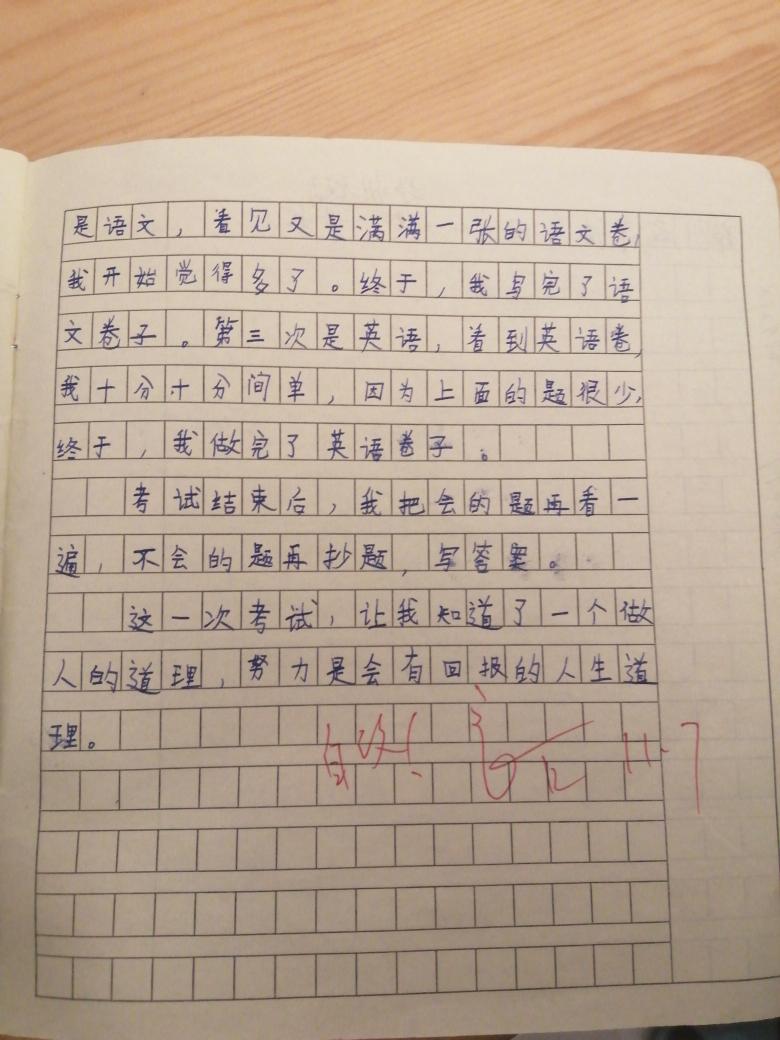 是语文，看见又是满满一张的语文卷，
我开始觉得多了。终于，我写完了语
文卷子。第三次是英语，看到英语卷，
我十分十分间单，因为上面的题很少，
终于，我做完了英语卷子。
考试结束后，我把会的题再看一
遍，不会的题再抄题，写答案。
这一次考试，让我知道了一个做
人的道理，努力是会有回报的人生道
理。
11.7